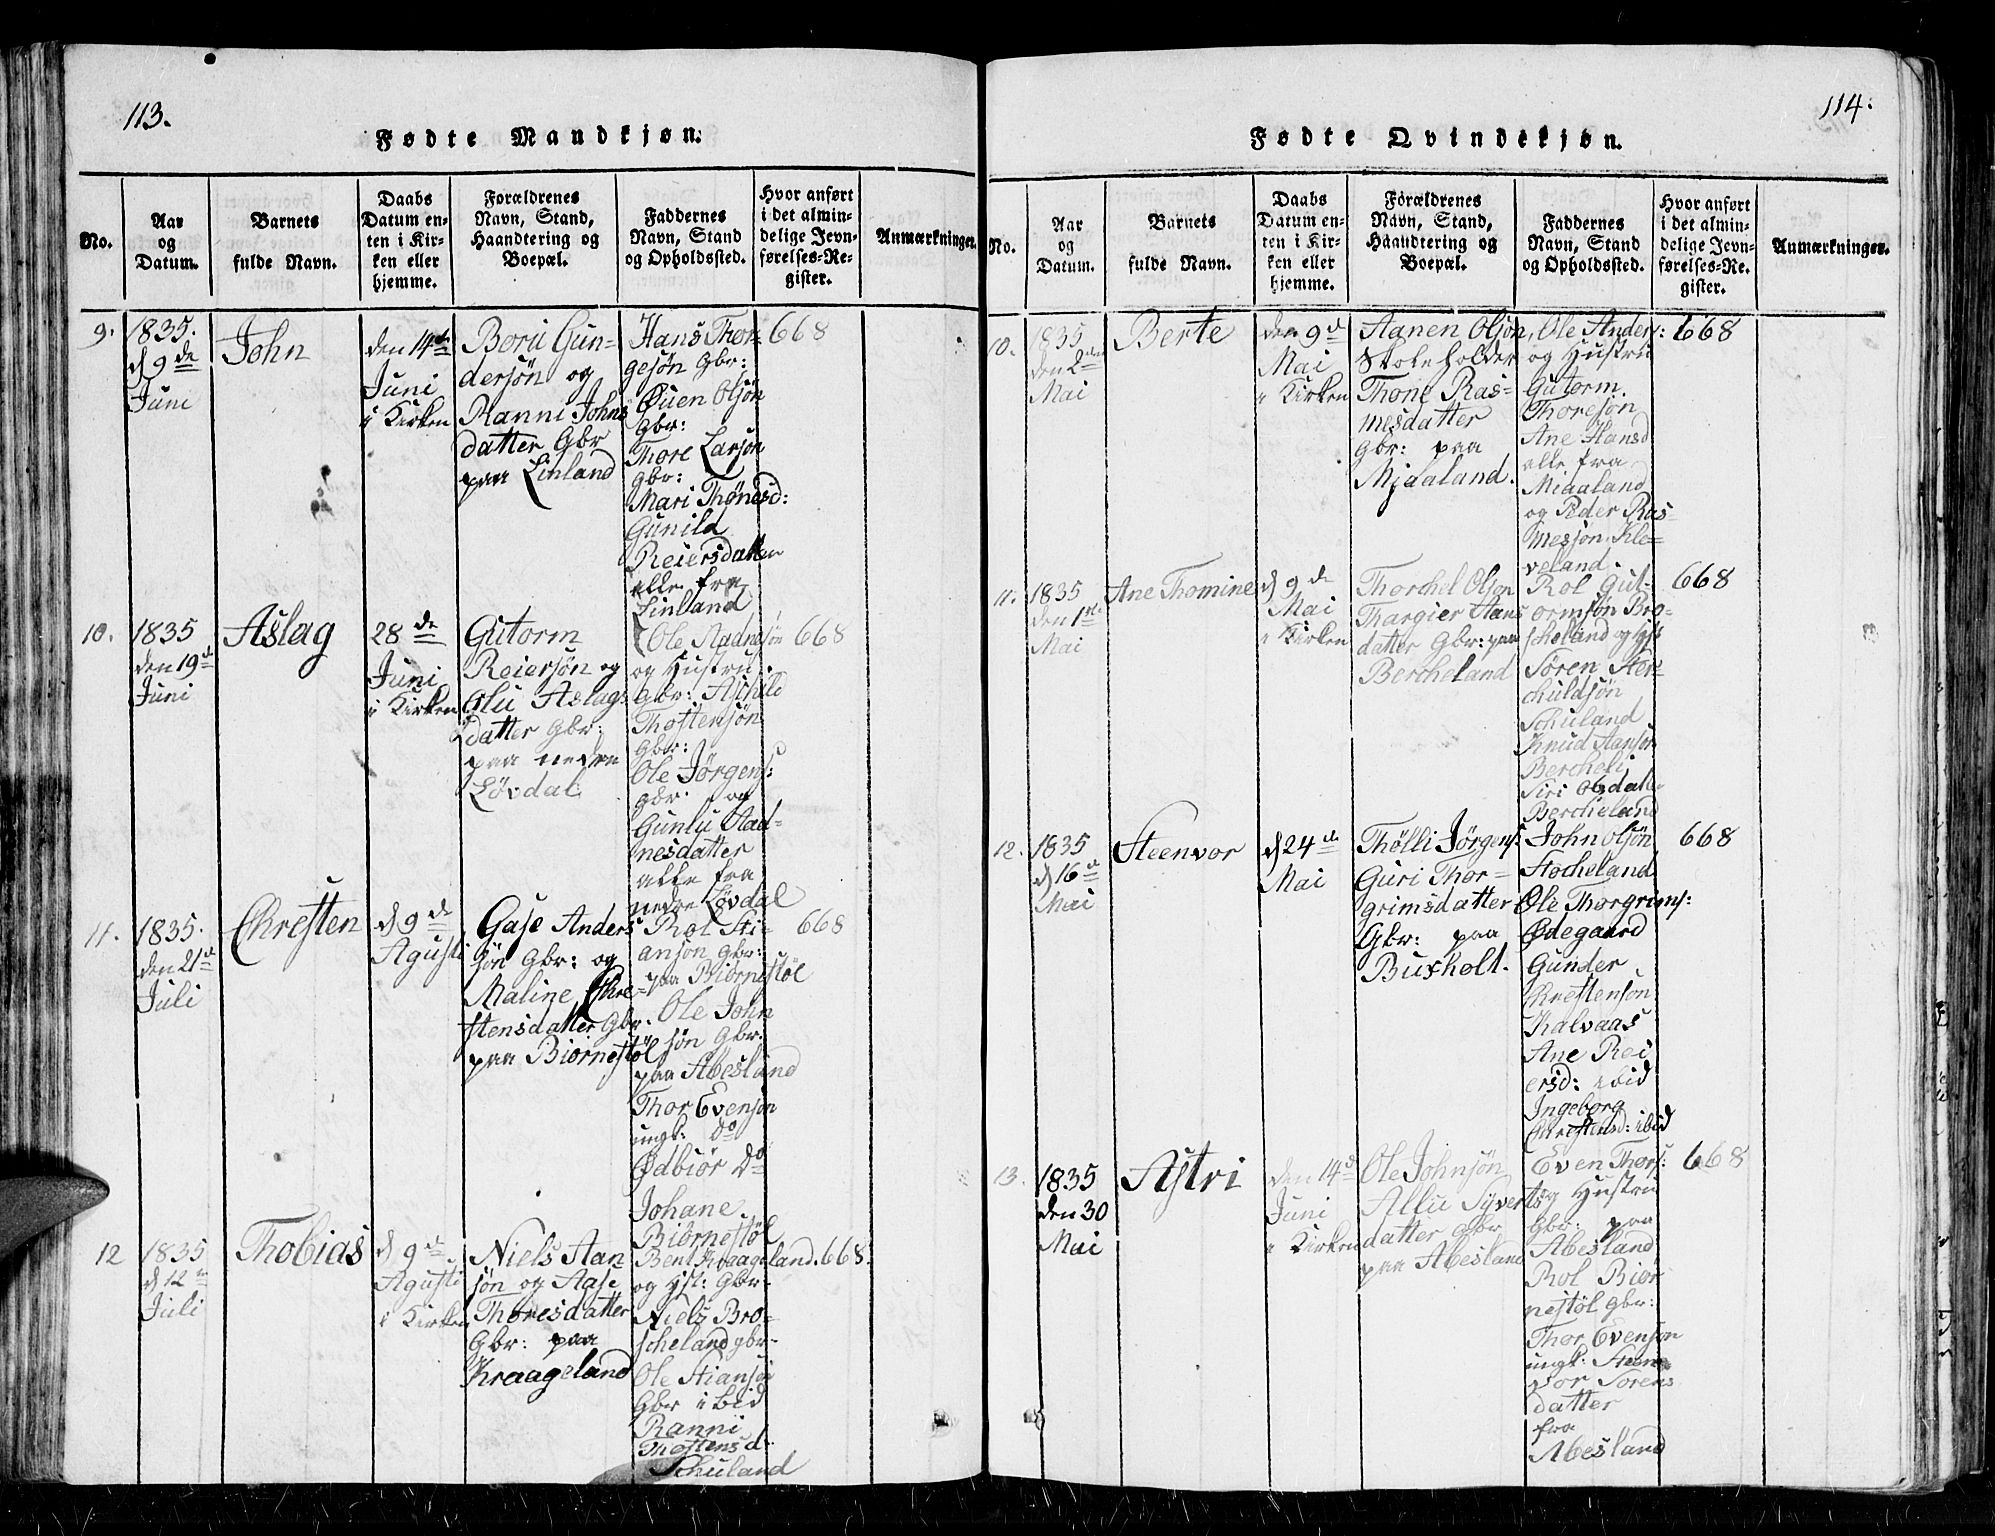 113.
Fødte Mandkjøn.
No.
Aar
og
Datum.
Barnets
fulde Navn.
Daabs
Datum en-
ten i Kir-
ken eller
hjemme.
Forældrenes
Navn, Stand,
Haandtering og
Boepæl.
Faddernes
Navn, Stand
og Opholdssted.
Hvor anført
i det almin-
delige Jevn-
førelses-Re-
gister.
Anmærkninger.
9.
1835.
d 9de
Juni
John
den 14de
Juni
i Kirken
Boru Gun-
dersøn og
Ranni Johns
datter Gbr
paa Linland
Hans Thor-
gesøn Gbr:
Øuen Olsøn
Gbr:
Thore Larsøn
Gbr:
Mari Thønesd:
Gunild
Reiersdatter
alle fra
Linland
668
10.
1835
den 19de
Juni
Aslag
28de
Juni
i Kirken
Gutorm
Reiersøn og
Olu Aslags
datter Gbr:
paa neden
Løvdal
Ole Aadnesøn
og Hustru
Gbr: Aschild
Thostensøn
Gbr:
Ole Jørgens:
gbr: og
Gunlu Aad-
nesdatter
alle fra
nedre Løvdal
668
11.
1835.
den 21de
Juli
Chresten
d 9de
Agusti
Gase Anders
søn Gbr: og
Maline Chre-
stensdatter Gbr.
paa Biørnestøl
Rol Sti-
anson Gbr:
paa Biørnestøl
Ole John
søn Gbr.
paa Abesland
Thor Evensøn
ungk: do
Ødbiør do
Johane
Biørnestøl
668
12
1835
d 12te
Juli
Thobias
d 9de
Agusti
i Kirken
Niels Aan
søn og Aase
Thoresdatter
Gbr: paa
Kraageland
Bent Kraageland.
og Hst: Gbr.
Niels Bro-
scheland gbr.
Ole Stiansøn
Gbr ibid
Ranni
Thostensd.
Schuland
668.
114.
Fødte Qvindekjøn.
No.
Aar
og
Datum.
Barnets
fulde Navn.
Daabs
Datum en-
ten i Kir-
ken eller
hjemme.
Forældrenes
Navn, Stand,
Haandtering og
Boepæl.
Faddernes
Navn, Stand
og Opholdssted.
Hvor anført
i det almin-
delige Jevn-
førelses-Re-
gister.
Anmærkninger.
10.
1835
den 2den
Mai
Berte
den 9de
Mai
i Kirken
Aanen Olsøn,
Skoleholder
Thone Ras-
mesdatter
Gbr: paa
Mjaaland.
Ole Anders:
og Hustru
Gutorm
Thoresøn
Ane Hansd
alle fra
Miaaland
og Peder Ras-
mesjøn Kle-
veland.
668
11.
1835
den 1ste
Mai
Ane Thomine
d 9de
Mai
i Kirken
Thorchel Olsøn
Thargier Hans
datter Gbr: paa
Bercheland
Rol Gut-
ormsøn Bro-
scheland og Hst
Søren Ster-
chuldsøn
Schuland
Knud Hansøn
Bercheli
Siri Olsdatter
Bercheland
668
12.
1835
d 16de
Mai
Steenvor
d 24de
Mai
Thølli Jørgens:
Guri Thor-
grimsdatter
Gbr: paa
Buxholt.
John Olsøn
Stocheland
Ole Thorgrims:
Ødegaard
Gunder
Chrestensøn
Kalvaas
Ane Rei
ersd: ibid
Ingeborg
Chrestensd: ibid
668
13.
1835
den 30
Mai
Astri
den 14de
Juni
i Kirken
Ole Johnsøn
Allu Syverts
datter gbr
paa Abesland
Even Thors:
og Hustru
Gbr: paa
Abesland
Rol Biør
nestøl gbr:
Thor Evensøn
ungk: Steen-
vor Sørens
datter
fra
Abesland
668